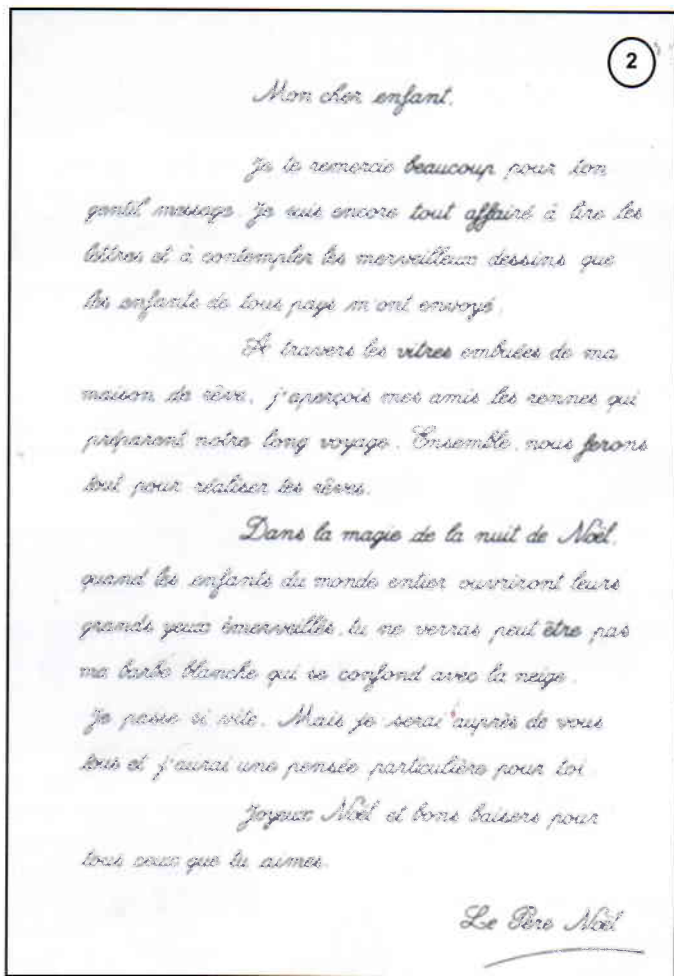 2
Mon cher enfant,
Je te remercie beaucoup pour ton
gentil message. Je suis encore tout affairé à lire les
lettres et à contempler les merveilleux dessins que
les enfants de tous pays m'ont envoyé.
A travers les vitres embuées de ma
maison de rêve, j'aperçois mes amis les rennes qui
préparent notre long voyage. Ensemble, nous ferons
tout pour réaliser tes rêves.
Dans la magie de la nuit de Noël,
quand les enfants du monde entier ouvriront leurs
grands yeux émerveillés, tu ne verras peut être pas
ma barbe blanche qui se confond avec la neige.
Je passe si vite. Mais je serai auprès de vous
tous et j'aurai une pensée particulière pour toi
Joyeux Noël et bons baisers pour
tous ceux que tu aimes.
Le Père Noël